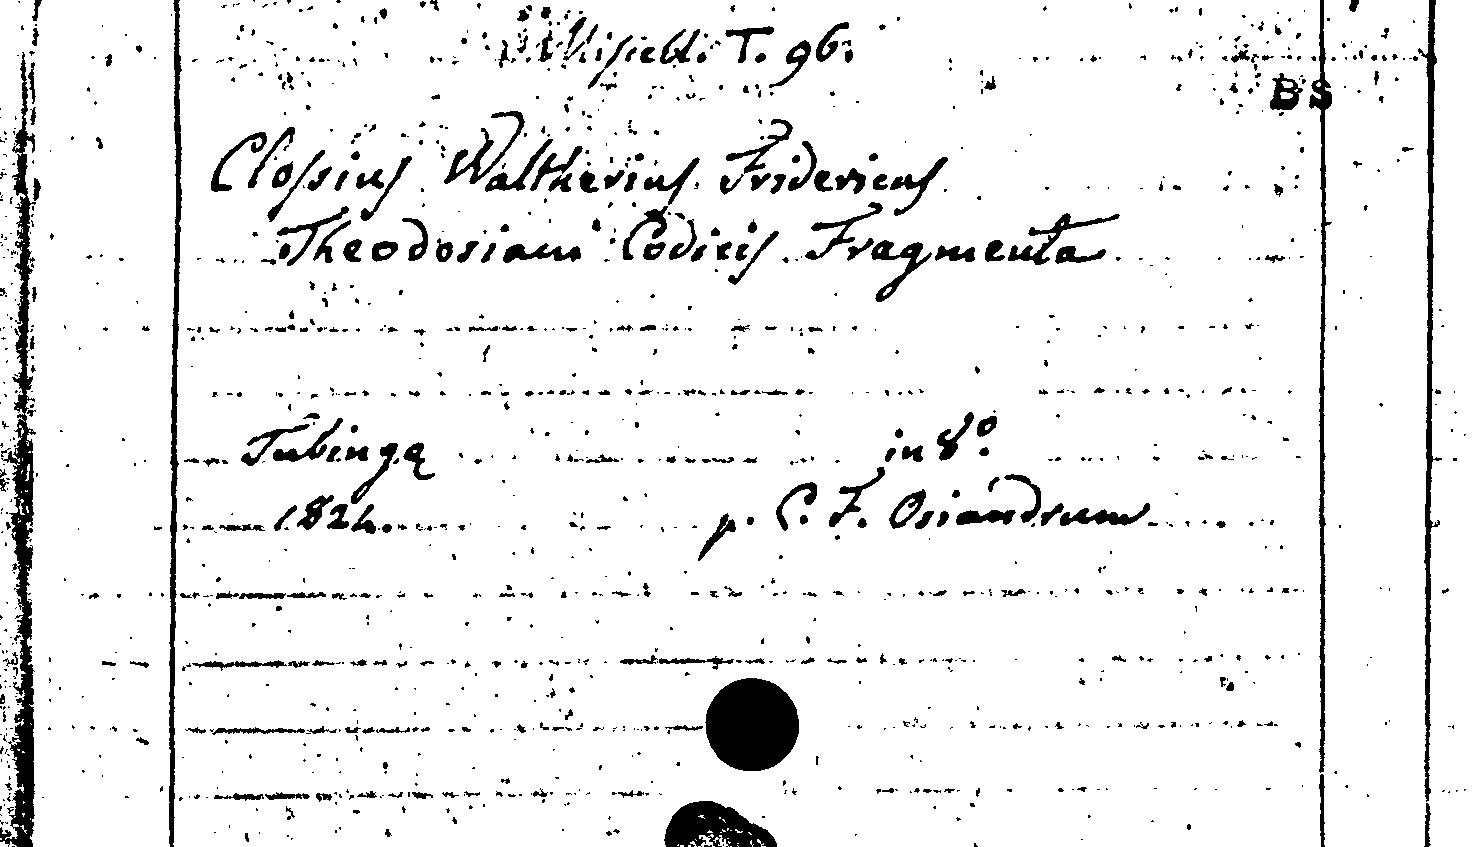 Miscell. T. 96.
BS
Clossius Waltherius Fridericus
Theodosiani Codicis Fragmenta
Tubingę in 8º.
1824. p. C. F. Osiandrum